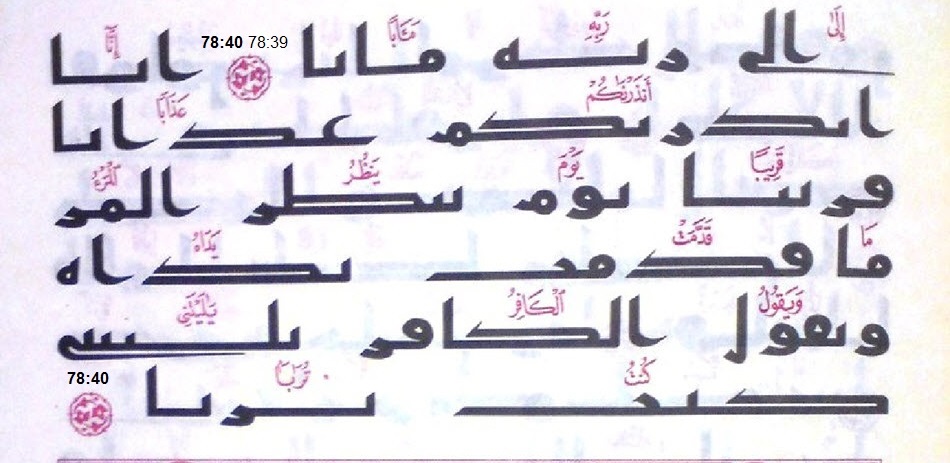 إِلَىٰ رَبِّهِ مَـَٔابًا 78:39 78:40 إِنَّا
الى ربه مابا انا
أَنذَرْنَٰكُمْ عَذَابًا
انذرنكم عذابا
قَرِيبًا يَوْمَ يَنظُرُ ٱلْمَرْءُ
قريبا يوم ينظر المر
مَا قَدَّمَتْ يَدَاهُ
ما قدمت يداه
وَيَقُولُ ٱلْكَافِرُ يَٰلَيْتَنِى
ويقول الكافر يليتنى
كُنتُ تُرَٰبًا 78:40
كنت تربا